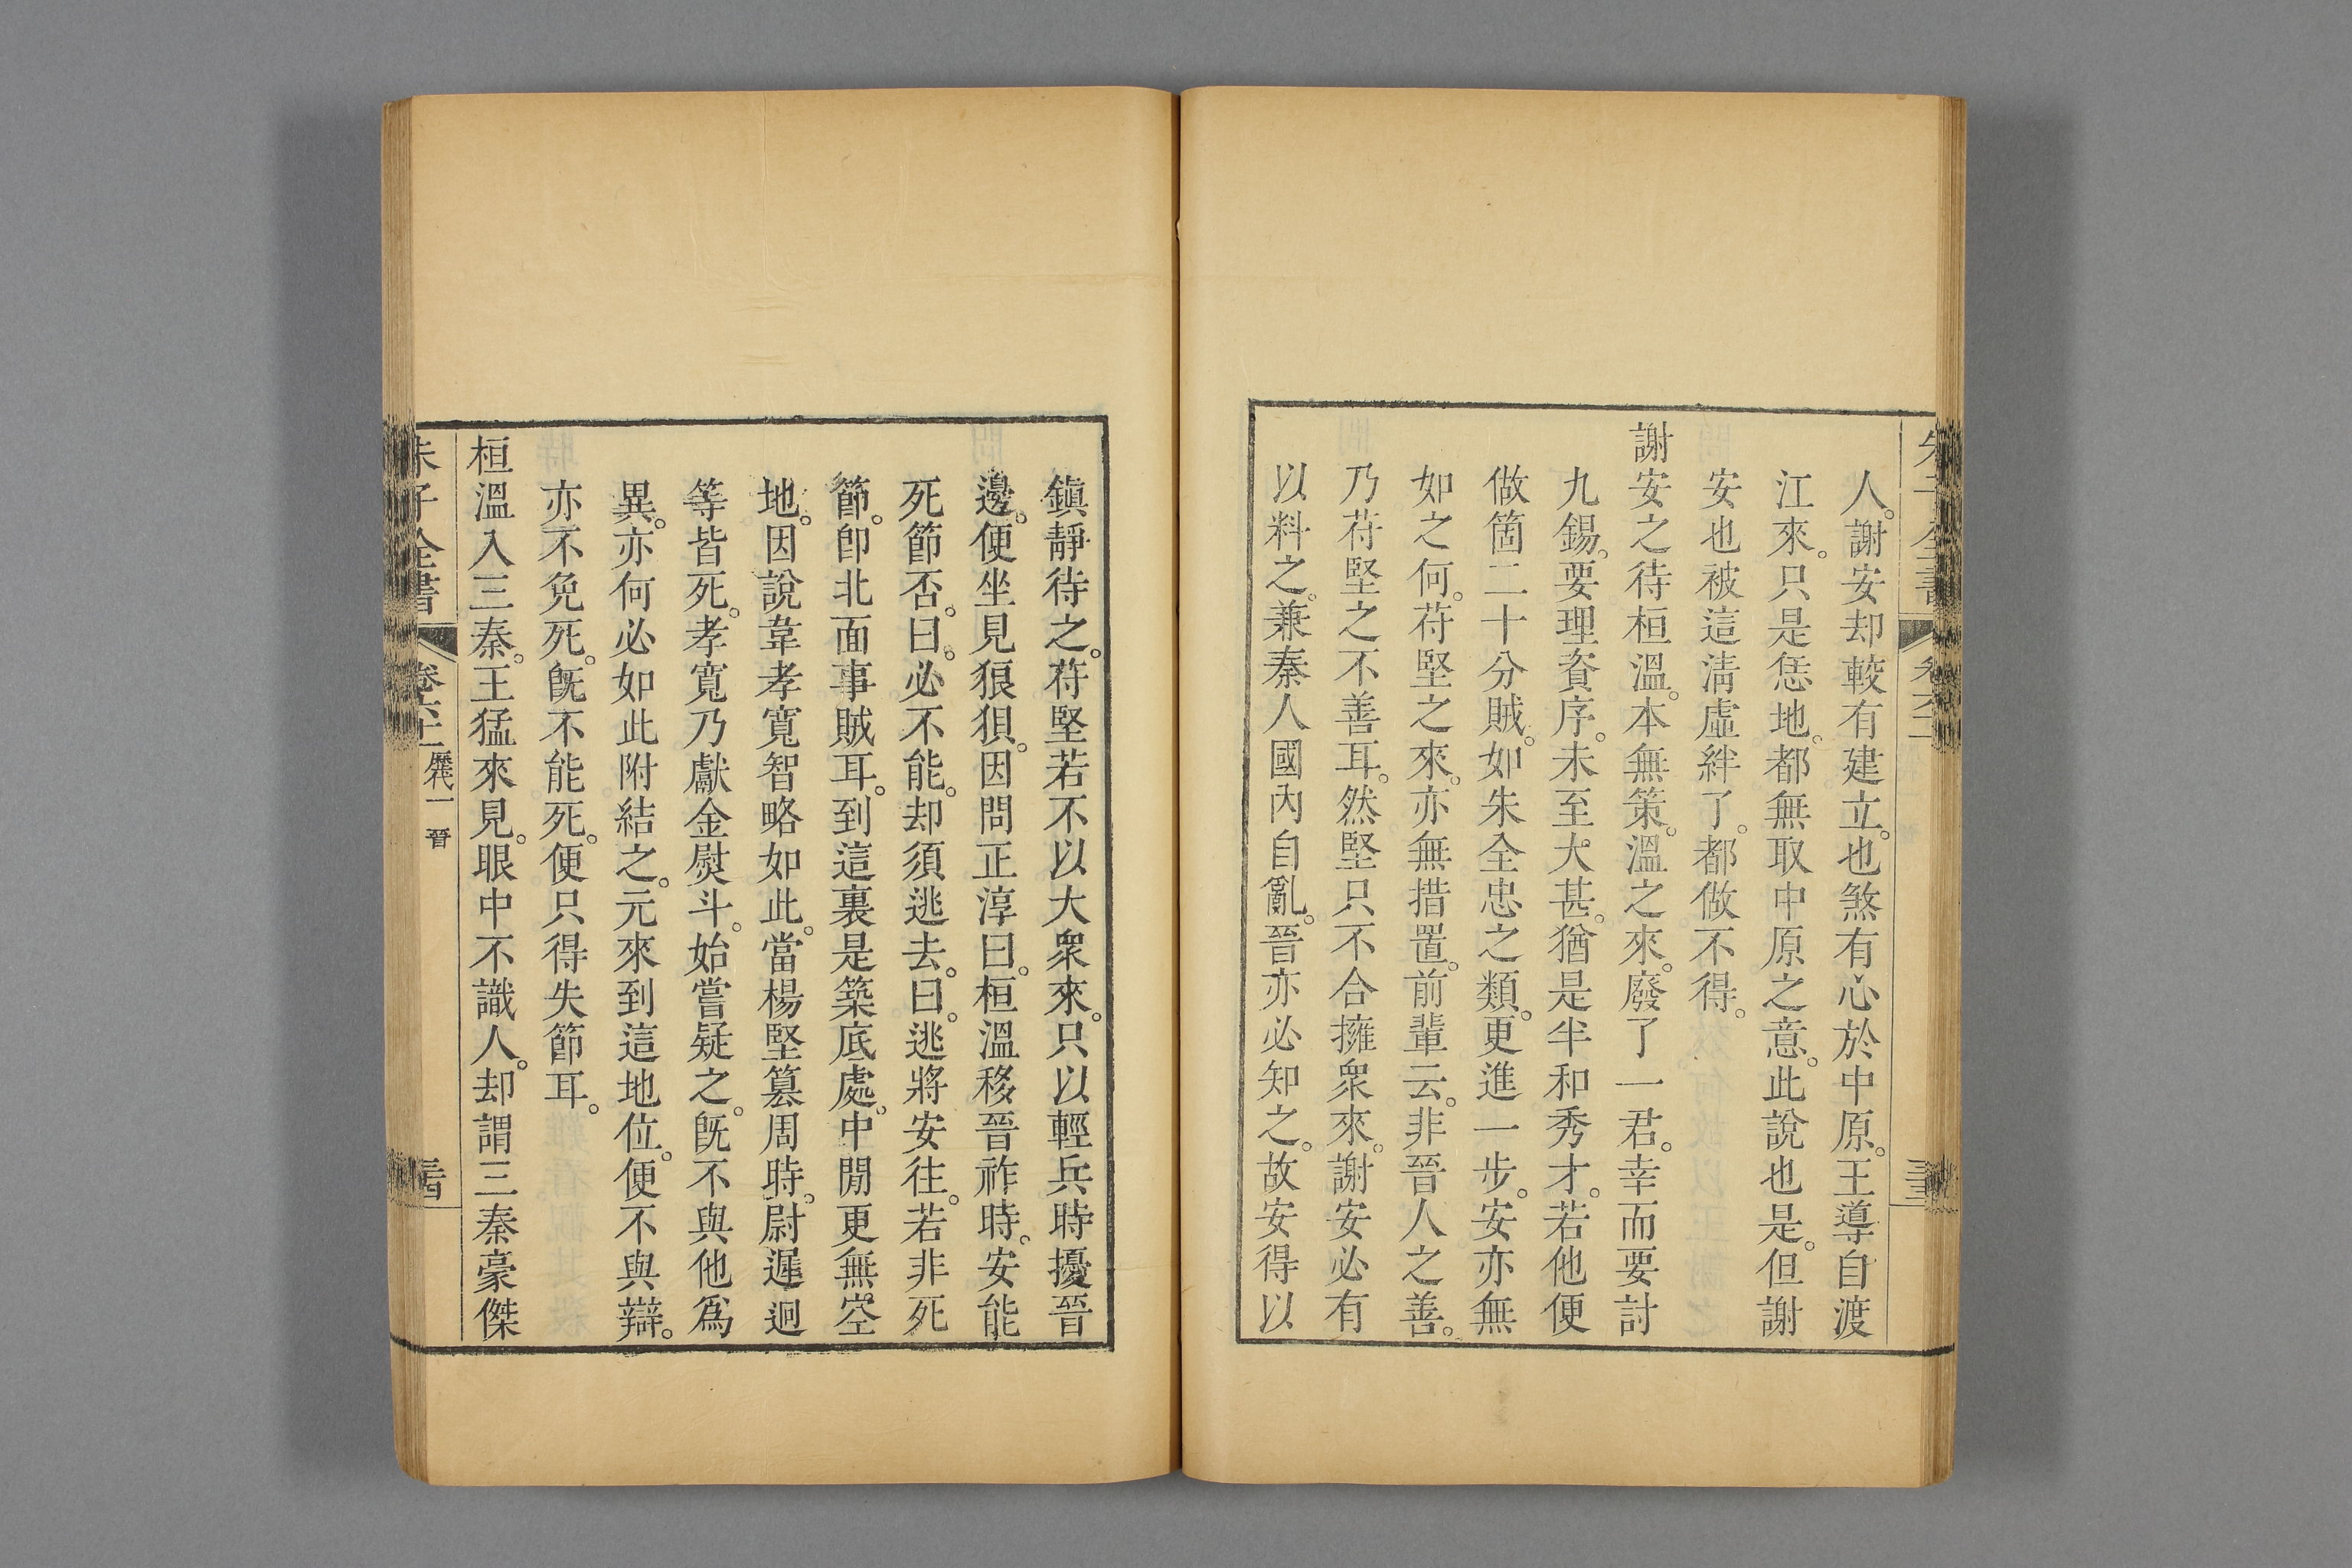 人。謝安却較有建立。也煞有心於中原。王導自渡
江來。只是恁地。都無取中原之意。此說也是。但謝
安也被這清虛絆了。都做不得。
謝安之待桓溫。本無策。溫之來。廢了一君。幸而要討
九錫。要理資序。未至大甚。猶是半和秀才。若他便
做箇二十分賊。如朱全忠之類。更進一步。安亦無
如之何。苻堅之來。亦無措置。前輩云。非晉人之善。
乃苻堅之不善耳。然堅只不合擁衆來。謝安必有
以料之。兼秦人國內自亂。晉亦必知之。故安得以
鎭靜待之。苻堅若不以大衆來。只以輕兵時擾晉
邊。便坐見狼狽。因問正淳曰。桓溫移晉祚時。安能
死節否。曰。必不能。却須逃去。曰。逃將安往。若非死
節。卽北面事賊耳。到這裏是築底處。中閒更無空
地。因說韋孝寬智略如此。當楊堅簒周時。尉遲迥
等皆死。孝寬乃獻金熨斗。始嘗疑之。旣不與他爲
異。亦何必如此附結之。元來到這地位。便不與辯。
亦不免死。旣不能死。便只得失節耳。
桓溫入三秦。王猛來見。眼中不識人。却謂三秦豪傑
朱子全書 卷六十二 歷代一 晉